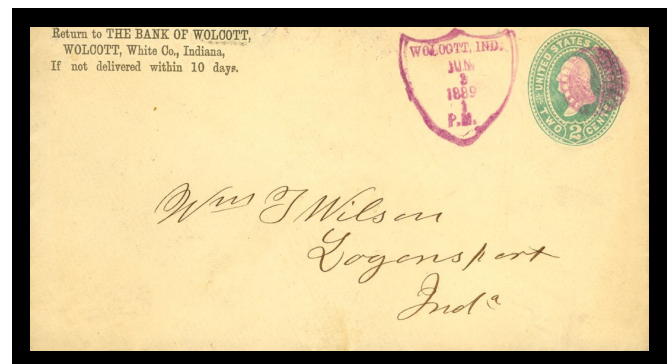 Return to THE BANK OF WOLCOTT,
WOLCOTT, White Co., Indiana,
If not delivered within 10 days.
WOLCOTT, IND.
JUN
3
1889
1
P.M.
UNITED STATES
TWO 2 CENTS
Wm T Wilson
Logansport
Inda